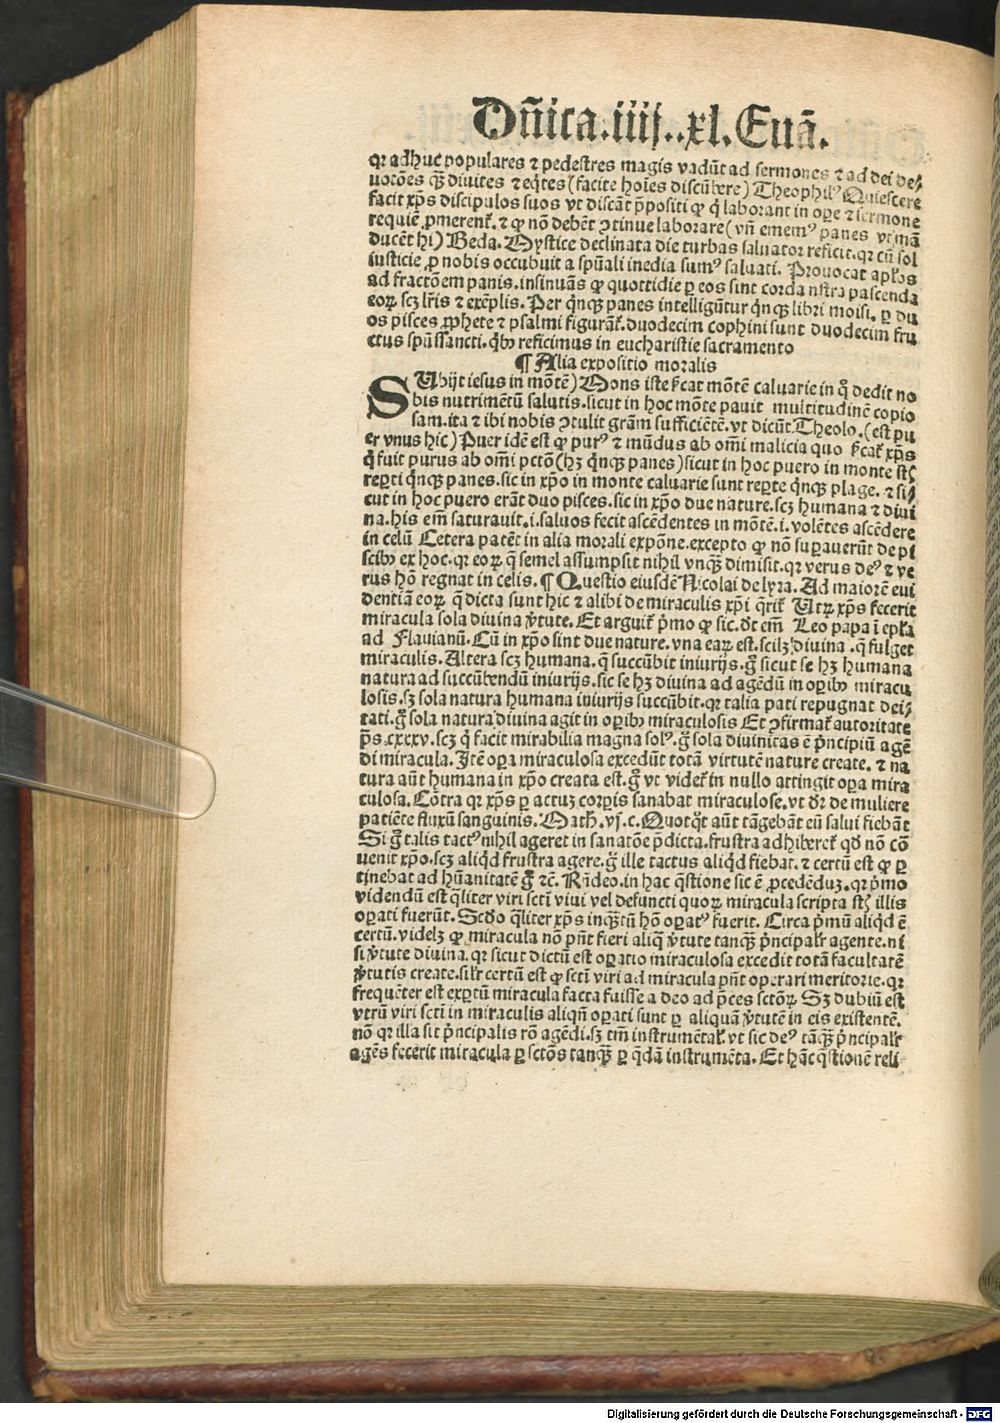 Dn̄ica.iiij..xl.Euā.
qꝛ adhuc populares ⁊ pedestres magis vadūt ad sermones ⁊ ad dei de⸗
uotōes q̄ꝫ diuites ⁊ eq̄tes (facite hoīes discūbere) Theophilꝰ Quiescere
facit xp̄s discipulos suos vt discāt p̄positi ꝙ q̇ laborant in oꝑe ⁊ sermone
requiē ꝓmerent̄. ⁊ ꝙ nō debēt ꝯtinue laborare (vn̄ ememꝰ panes vt mā
ducēt hi) Beda. Mystice declinata die turbas saluator reficit. qꝛ cū sol
iusticie ꝓ nobis occubuit a spūali inedia sumꝰ saluati. Prouocat apl̄os
ad fractōem panis. insinuās ꝙ quottidie ꝑ eos sint corda nr̄a pascenda
eoꝝ scꝫ lr̄is ⁊ exēplis. Per q̇nqꝫ panes intelligūtur q̇nqꝫ libri moisi. ꝑ du
os pisces ꝓphete ⁊ psalmi figurāt̄. duodecim cophini sunt duodecim fru
ctus spūssancti. q̇bꝰ reficimus in eucharistie sacramento
¶ Alia expositio moralis
SUbijt iesus in mōtē) Mons iste s̄cat mōtē caluarie in q̊ dedit no
bis nutrimētū salutis. sicut in hoc mōte pauit multitudinē copio
sam. ita ⁊ ibi nobis ꝯtulit grām sufficiētē. vt dicūt Theolo. (est pu
er vnus hic) Puer idē est ꝙ purꝰ ⁊ mūdus ab om̄i malicia quo s̄cat̄ xp̄s
q̇ fuit purus ab om̄i pctō (hꝫ q̇nqꝫ panes) sicut in hoc puero in monte st̄
reꝑti q̇nqꝫ panes. sic in xp̄o in monte caluarie sunt reꝑte q̇nqꝫ plage. ⁊ si⸗
cut in hoc puero erāt duo pisces. sic in xp̄o due nature. scꝫ humana ⁊ diui
na. his em̄ saturauit. i. saluos fecit ascēdentes in mōtē. i. volētes ascēdere
in celū Cetera patēt in alia morali expōne. excepto ꝙ nō suꝑauerūt de pi
scibꝰ ex hoc. qꝛ eoꝝ q̄ semel assumpsit nihil vnq̄ꝫ dimisit. qꝛ verus deꝰ ⁊ ve
rus hō regnat in celis. ¶ Questio eiusdē Nicolai de lyra. Ad maiorē eui
dentiā eoꝝ q̄ dicta sunt hic ⁊ alibi de miraculis xp̄i q̄rit̄ Utꝝ xp̄s fecerit
miracula sola diuina v̇tute. Et arguit̄ ṗmo ꝙ sic. dt̄ em̄ Leo papa ī epl̄a
ad Flauianū. Cū in xp̄o sint due nature. vna eaꝝ est. scilꝫ diuina. q̄ fulget
miraculis. Altera scꝫ humana. q̄ succūbit iniurijs. g̊ sicut se hꝫ humana
natura ad succūbendū iniurijs. sic se hꝫ diuina ad agēdū in oꝑibꝰ miracu
losis. sꝫ sola natura humana iniurijs succūbit. qꝛ talia pati repugnat dei⸗
tati. g̊ sola natura diuina agit in oꝑibꝰ miraculosis Et ꝯfirmat̄ autoritate
p̄s. cxxxv. scꝫ q̇ facit mirabilia magna solꝰ. g̊ sola diuinitas ē ṗncipiū agē
di miracula. Itē oꝑa miraculosa excedūt totā virtutē nature create. ⁊ na
tura aūt humana in xp̄o creata est. g̊ vt videt̄ in nullo attingit oꝑa mira
culosa. Cōtra qꝛ xp̄s ꝑ actuꝫ corꝑis sanabat miraculose. vt dr̄ de muliere
patiēte fluxū sanguinis. Math. vj. c. Quotq̇t aūt tāgebāt eū salui fiebāt
Si g̊ talis tactꝰ nihil ageret in sanatōe p̄dicta. frustra adhiberet̄ qd̄ nō cō
uenit xp̄o. scꝫ aliq̇d frustra agere. g̊ ille tactus aliq̇d fiebat. ⁊ certū est ꝙ ꝑ
tinebat ad hūanitatē g̊ ⁊c̄. Rn̄deo. in hac q̄stione sic ē ꝓcedēduꝫ. qꝛ ṗmo
videndū est q̄liter viri sctī viui vel defuncti quoꝝ miracula scripta st̄ illis
oꝑati fuerūt. Scd̄o q̄liter xp̄s inq̄ꝫtū hō oꝑatꝰ fuerit. Circa ṗmū aliq̇d ē
certū. videlꝫ ꝙ miracula nō pn̄t fieri aliq̄ v̇tute tanq̄ꝫ ṗncipalr̄ agente. ni
si v̇tute diuina. qꝛ sicut dictū est oꝑatio miraculosa excedit totā facultatē
v̇tutis create. silr̄ certū est ꝙ sctī viri ad miracula pn̄t operari meritorie. qꝛ
frequēter est exꝑtū miracula facta fuisse a deo ad p̄ces sctōꝝ. Sꝫ dubiū est
vtrū viri sctī in miraculis aliqn̄ oꝑati sunt ꝑ aliquā v̇tutē in eis existentē.
nō qꝛ illa sit ṗncipalis rō agēdi. sꝫ tm̄ instrumētal̄. vt sic deꝰ tāq̄ꝫ ṗncipalr̄
agēs fecerit miracula ꝑ sctōs tanq̄ꝫ ꝑ q̄dā instrumēta. Et hāc q̄stionē reli
Digitalisierung gefördert durch die Deutsche Forschungsgemeinschaft - DFG